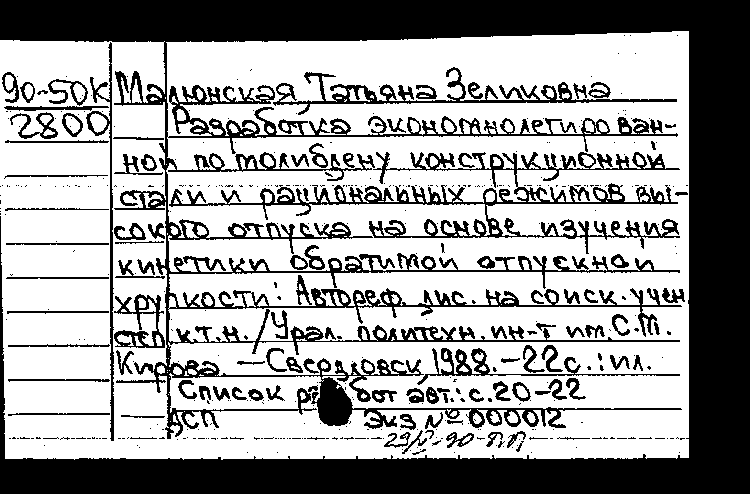 90-50К Малюнская, Татьяна Зеликовна
2800 Разработка экономнолегирован-
ной по молибдену конструкционной
стали и рациональных режимов вы-
сокого отпуска на основе изучения
кинетики обратимой отпускной
хрупкости: Автореф. дис. на соиск. учен.
степ. к.т.н. / Урал. политехн. ин-т им. С.М.
Кирова. — Свердловск, 1988. — 22 с. : ил.
Список работ авт.: с. 20-22
ДСП Экз № 000012